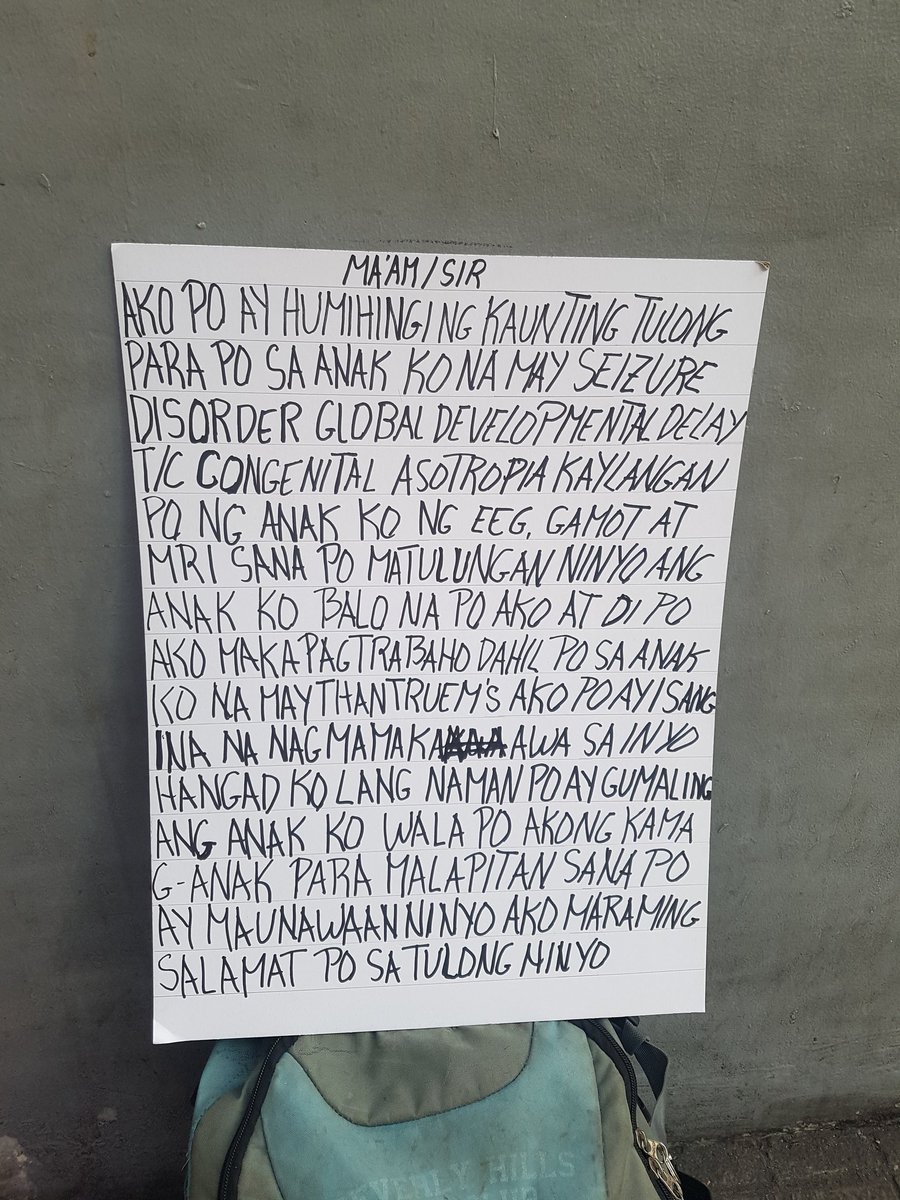 MA'AM/SIR
AKO PO AY HUMIHINGI NG KAUNTING TULONG
PARA PO SA ANAK KO NA MAY SEIZURE
DISORDER GLOBAL DEVELOPMENTAL DELAY
T/C CONGENITAL ASOTROPIA KAYLANGAN
PO NG ANAK KO NG EEG, GAMOT AT
MRI SANA PO MATULUNGAN NINYO ANG
ANAK KO BALO NA PO AKO AT DI PO
AKO MAKAPAGTRABAHO DAHIL PO SA ANAK
KO NA MAY THANTRUEM'S AKO PO AY ISANG
INA NA NAGMAMAKA AWA SA INYO
HANGAD KO LANG NAMAN PO AY GUMALING
ANG ANAK KO WALA PO AKONG KAMA
G-ANAK PARA MALAPITAN SANA PO
AY MAUNAWAAN NINYO AKO MARAMING
SALAMAT PO SA TULONG NINYO
BEVERLY HILLS